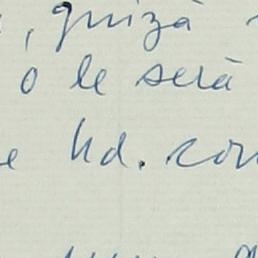 , quizá
o le será
Ud. con